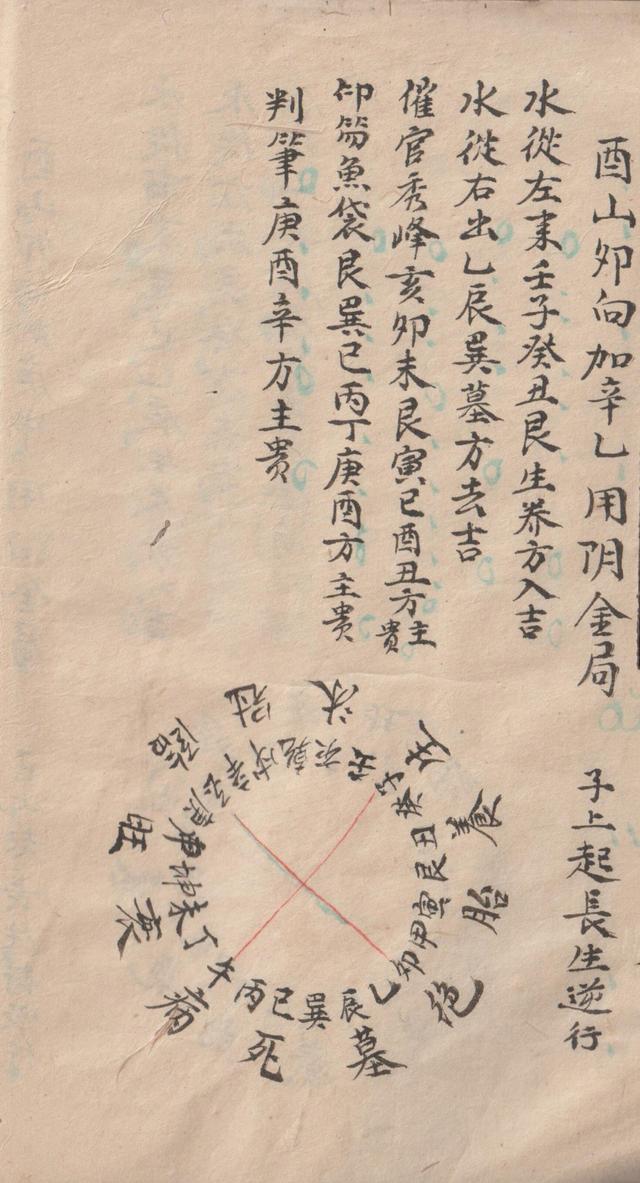 酉山卯向加辛乙用阴金局 子上起長生逆行
水從左来壬子癸丑艮生养方入吉
水從右出乙辰巽墓方去吉
催官秀峰亥卯未艮寅巳酉丑方主貴
印笏魚袋艮巽巳丙丁庚酉方主贵
判筆庚酉辛方主贵
生養胎絶墓死病衰旺臨冠沐
子癸丑艮寅甲卯乙辰巽巳丙午丁未坤庚酉辛戌乾亥壬